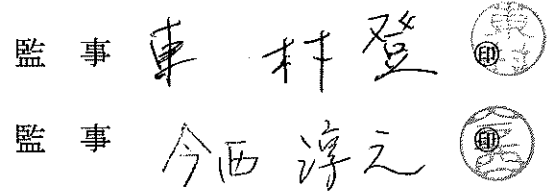 監事 東村登 ㊞
監事 今西淳元 ㊞